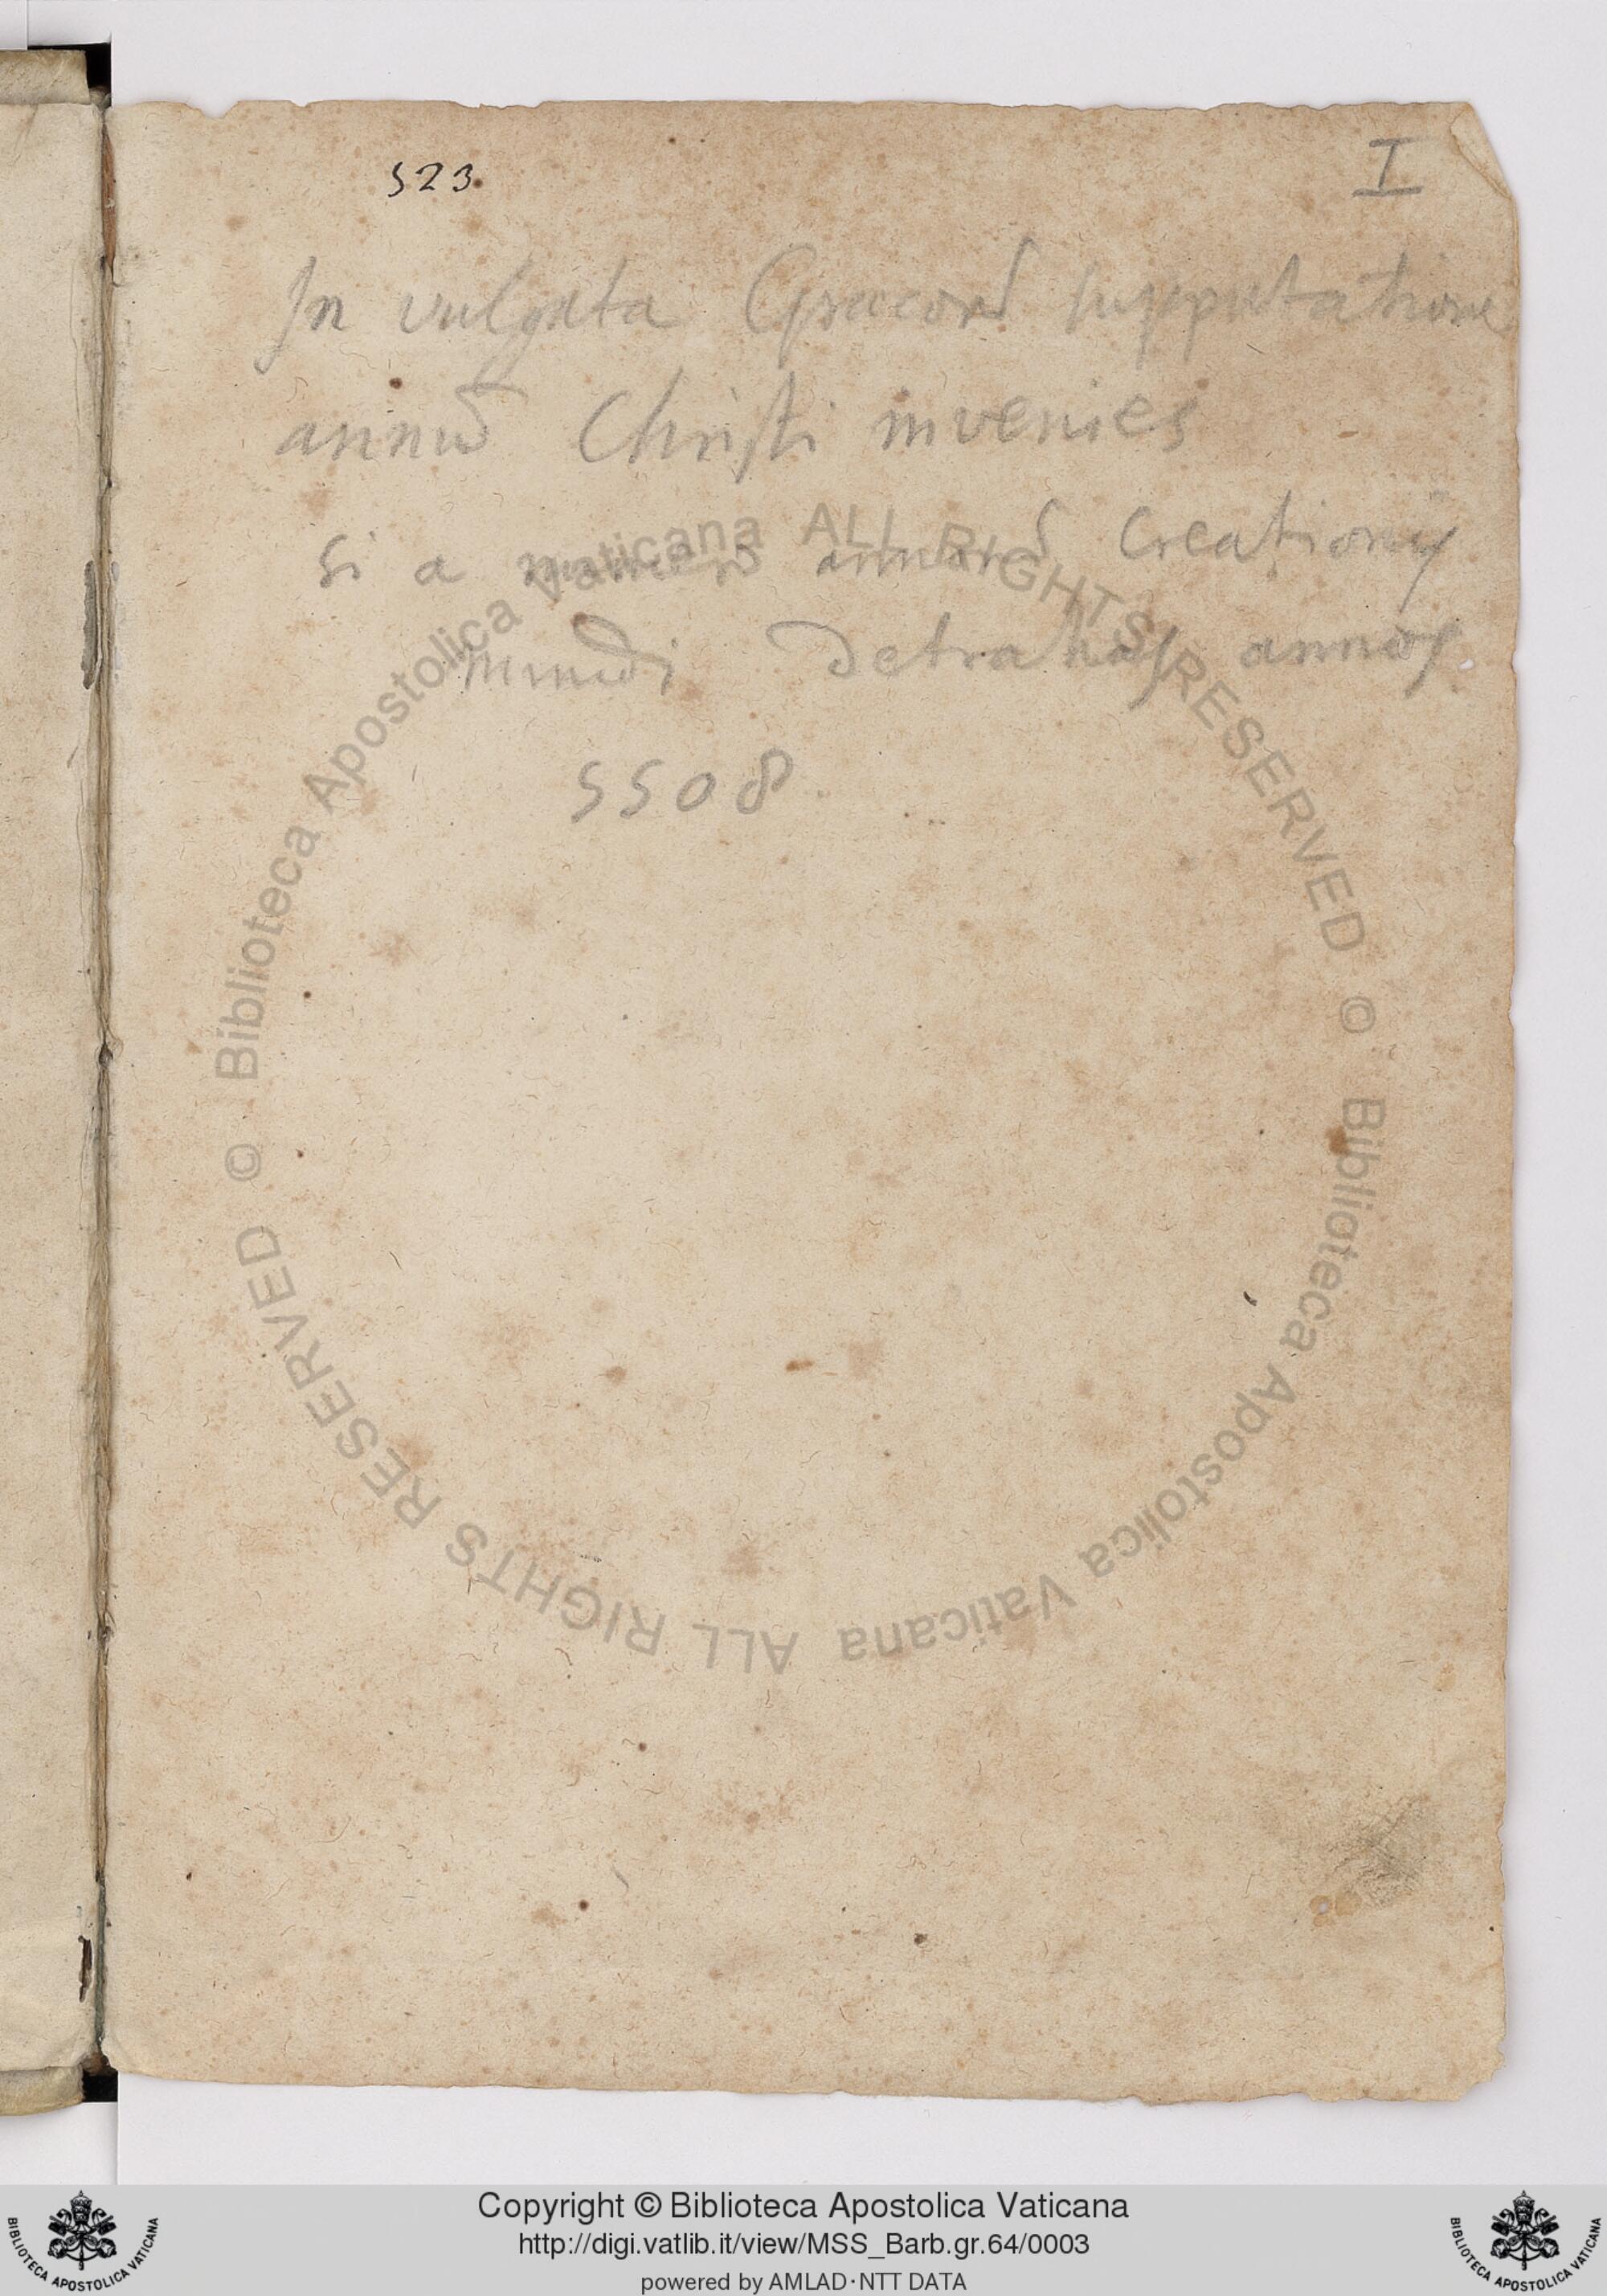 523.
I
In vulgata Graecorū supputatione
annū Christi invenies
si a numero annorū Creationis
mundi detrahas annos
5508
© Biblioteca Apostolica Vaticana ALL RIGHTS RESERVED
© Biblioteca Apostolica Vaticana ALL RIGHTS RESERVED
Copyright © Biblioteca Apostolica Vaticana
http://digi.vatlib.it/view/MSS_Barb.gr.64/0003
powered by AMLAD·NTT DATA
BIBLIOTECA APOSTOLICA VATICANA
BIBLIOTECA APOSTOLICA VATICANA